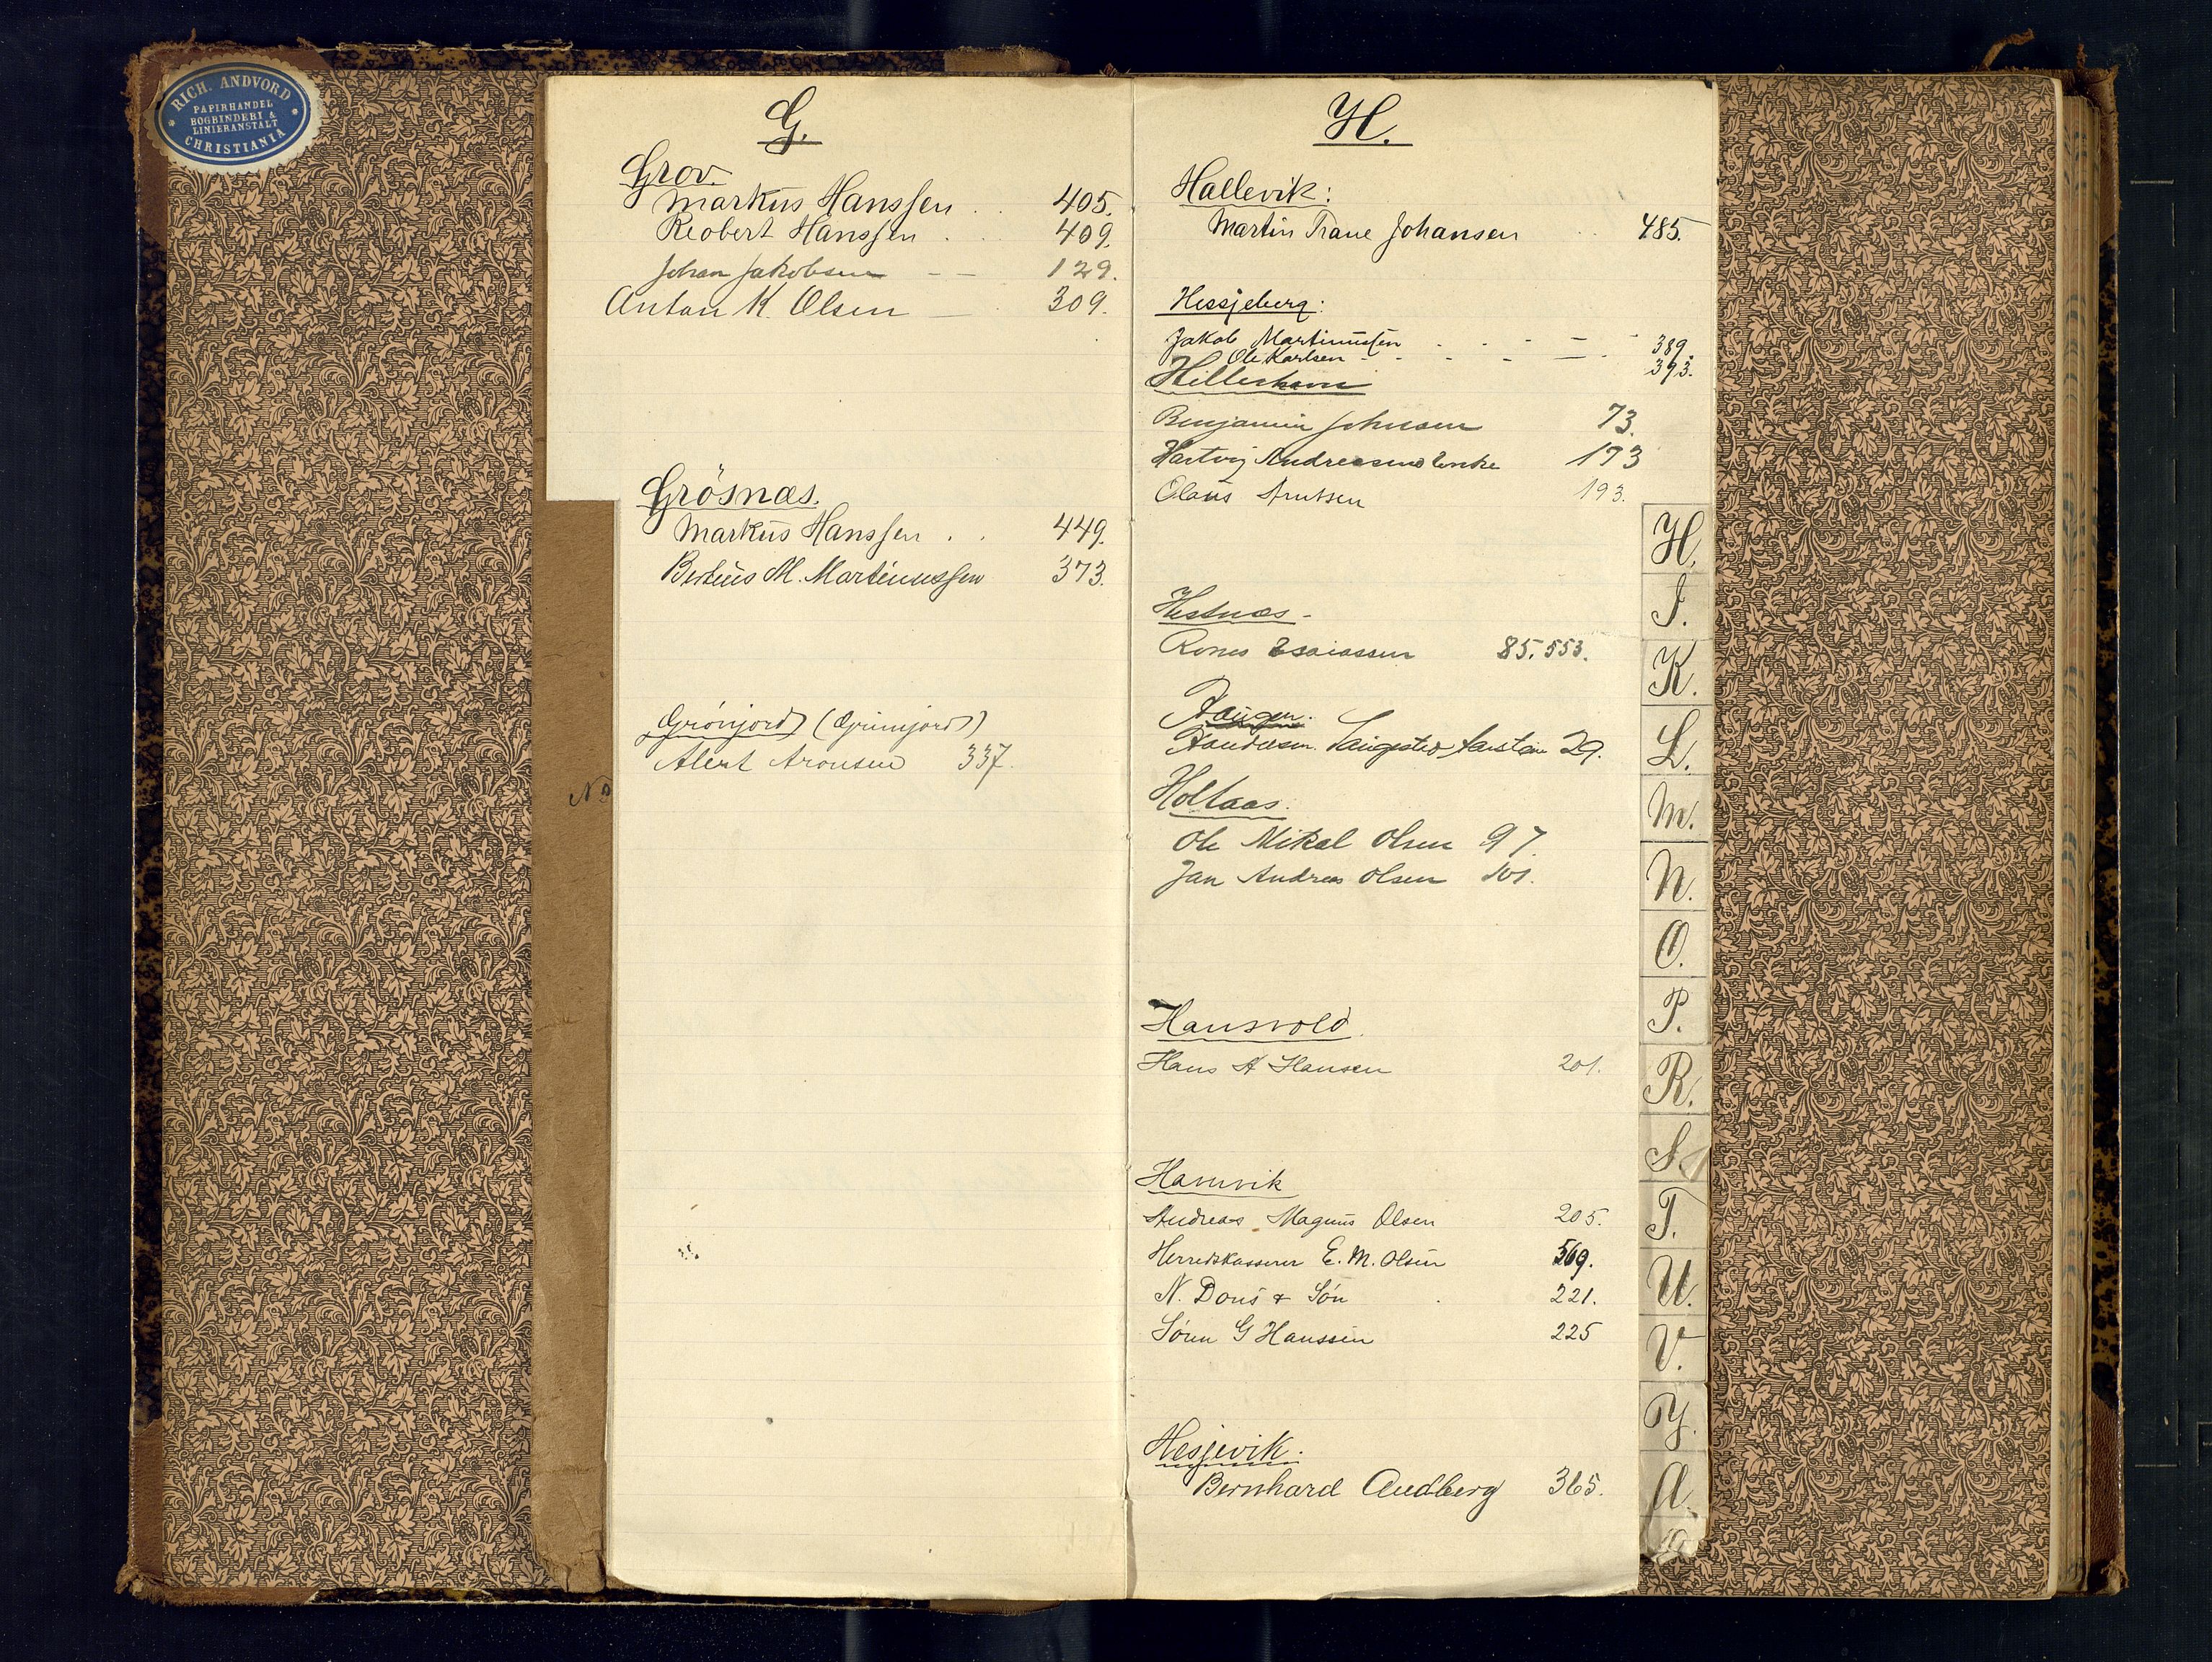 RICH. ANDVORD
PAPIRHANDEL
BOGBINDERI &
LINIERANSTALT
CHRISTIANIA
G.
Grov.
Markus Hanssen . . 405.
Reobert Hanssen . . 409.
Johan Jakobsen — — 129.
Anton K. Olsen — 309.
Grösnæs.
Markus Hanssen . . 449.
Berteus M. Martinussen 373.
Grønjord (Grimjord)
Alert Aronsen 337.
N
H.
Hallevik:
Martin Trane Johansen . . 485.
Hessjeberg:
Jakob Martinussen 389.
Ole Karlsen 393.
Hilleshavn
Benjamin Johnsen 73.
Hartvig Andreasens Enke 173
Olaus Arntsen 193.
Hestnæs.
Rones Esaiassen 85. 553.
Haugen.
29.
Holtaas.
Ole Mikal Olsen 97.
Jan Andreas Olsen 101.
Hansvold.
Hans A Hansen 201.
Hamvik
Andreas Magnus Olsen 205.
Herredskasserer E. M. Olsen 569.
N. Dons & Søn 221.
Søren G Hanssen 225
Hesjevik.
Bernhard Audberg 365.
H.
I.
K.
L.
M.
N.
O.
P.
R.
S.
T.
U.
V.
Y.